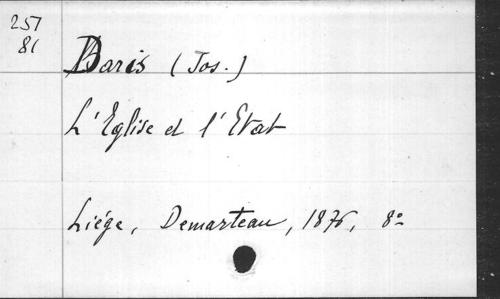 257
81
Daris (Jos.)
L'Eglise et l'Etat
Liége, Demarteau, 1876, 8º